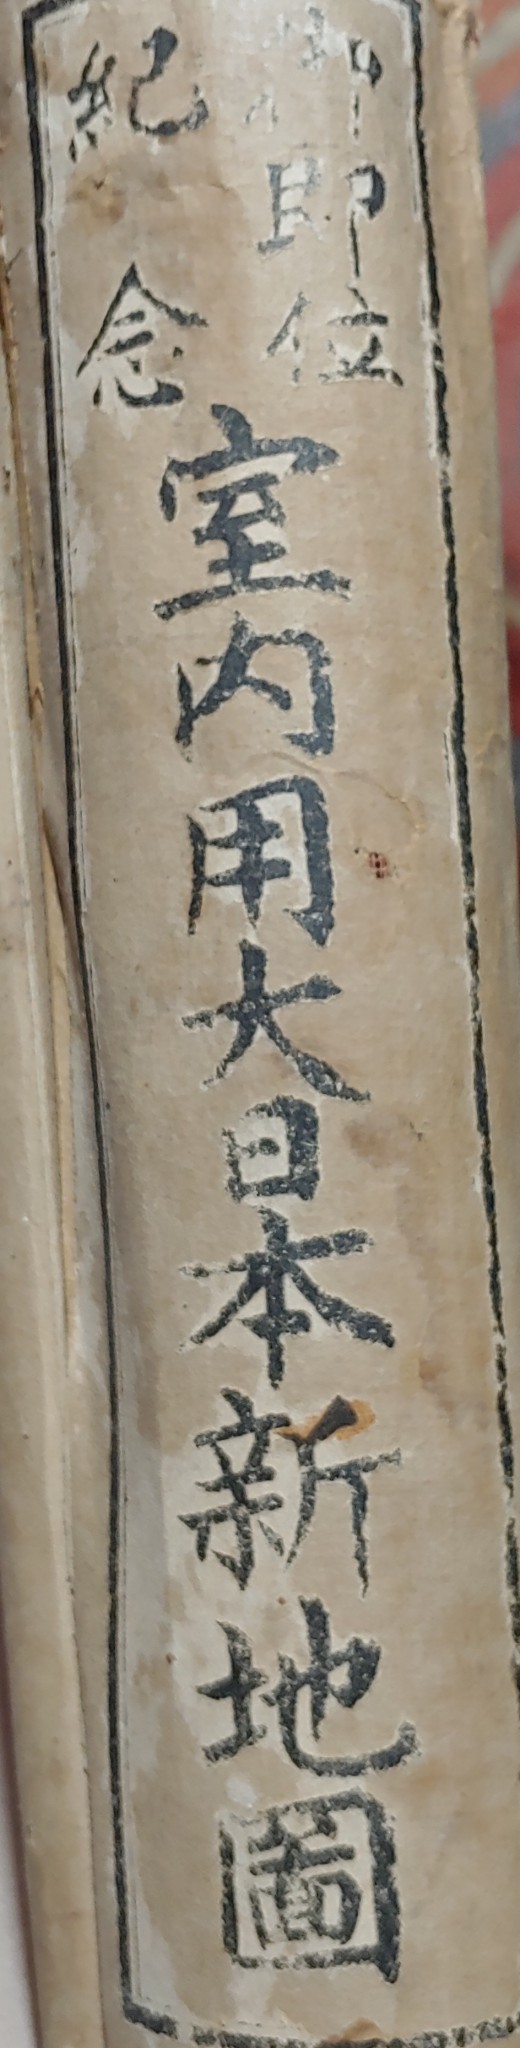 御即位
紀念
室内用大日本新地圖